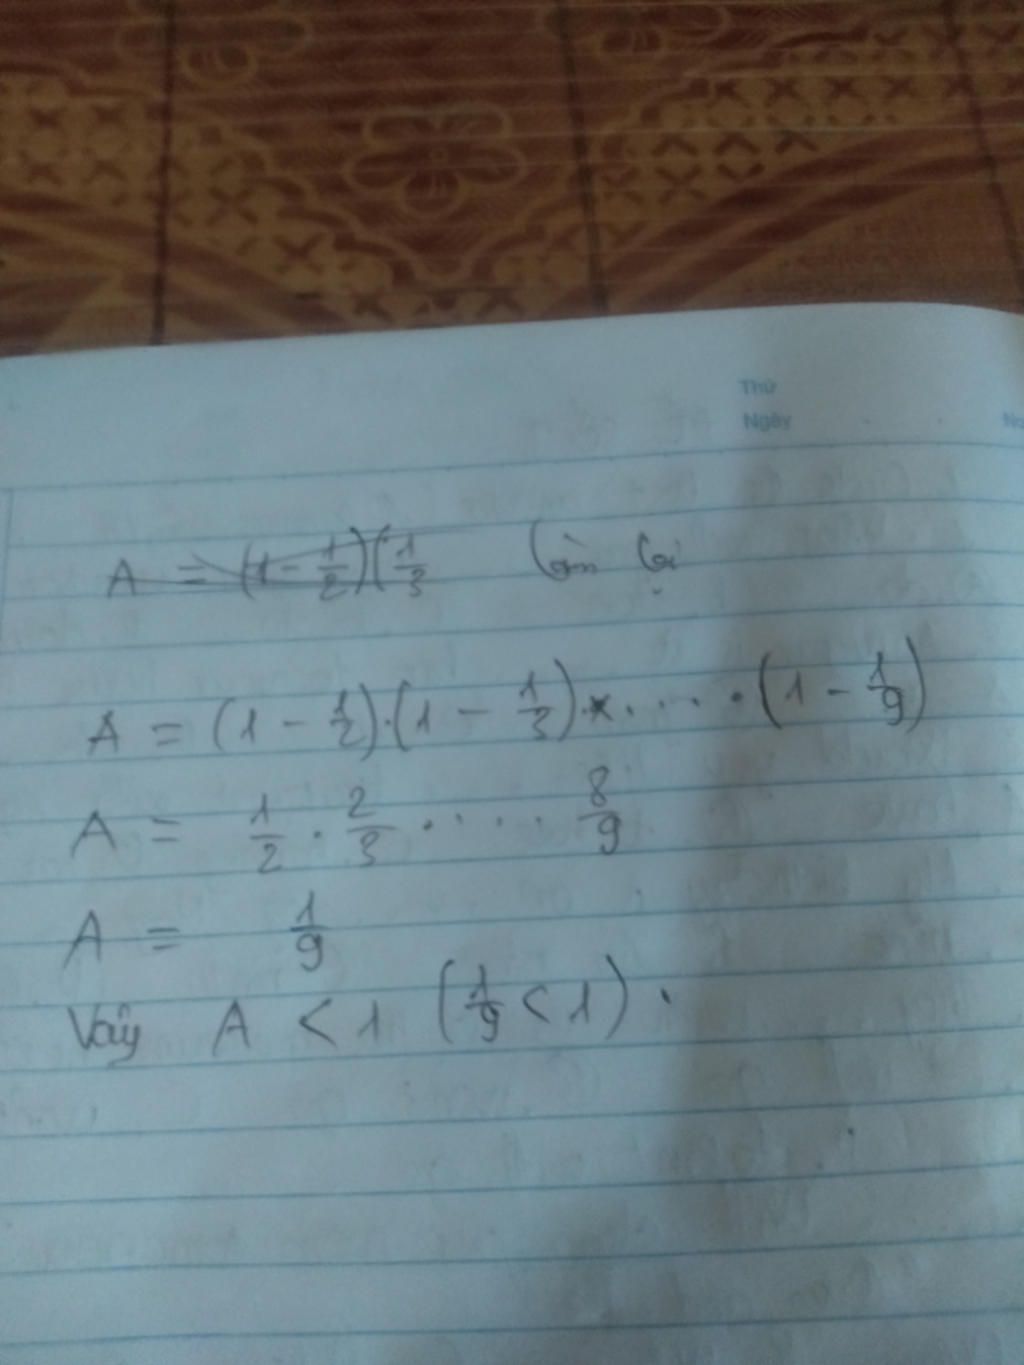 Thứ
Ngày
A = (1 - 1/2)(1/3 Làm lại
A = (1 - 1/2).(1 - 1/3).x.... .(1 - 1/9)
A = 1/2 . 2/3 ..... 8/9
A = 1/9
Vậy A < 1 (1/9 < 1).